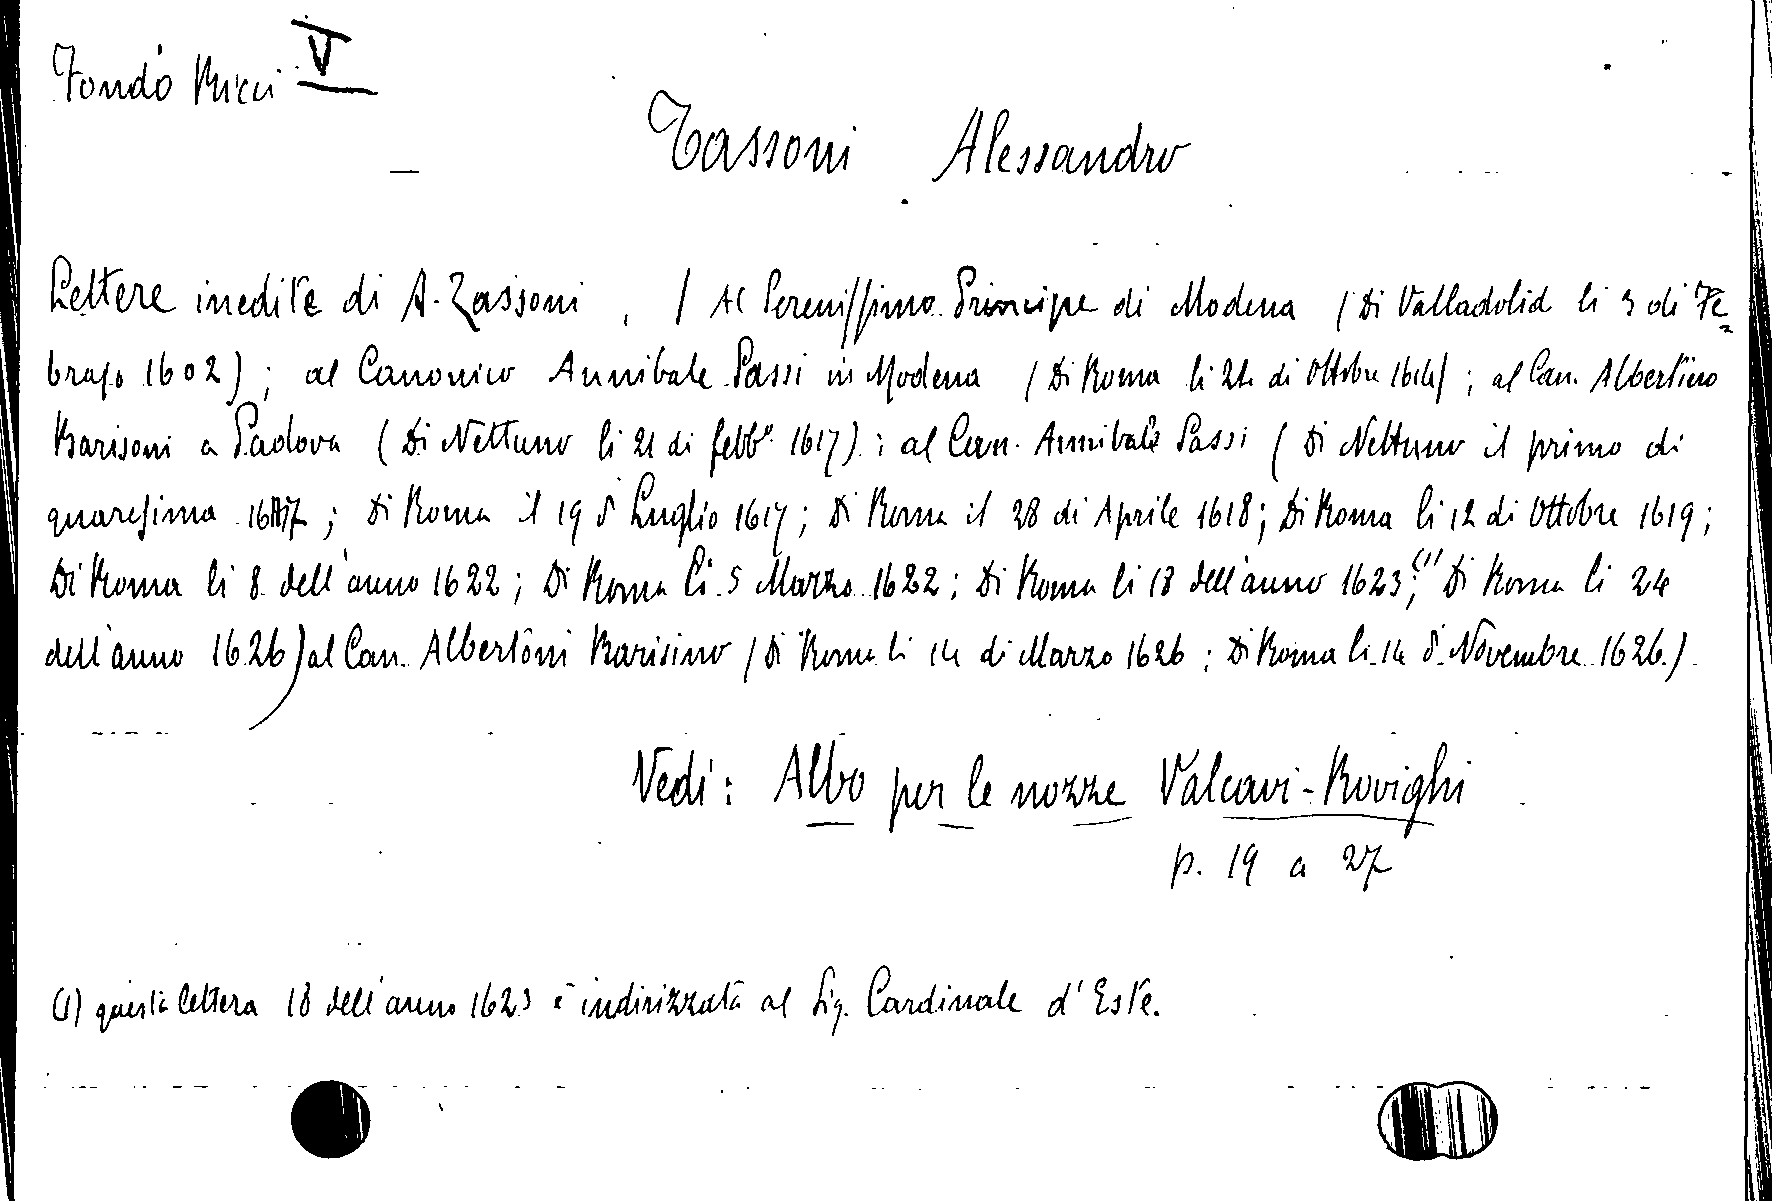 Fondo Ricci V
Tassoni Alessandro
Lettere inedite di A. Tassoni. / Al Serenissimo Principe di Modena (Di Valladolid li 3 di Fe=
brajo 1602); al Canonico Annibale Sassi in Modena (Di Roma li 24 di Ottobre 1614); al Can. Albertino
Barisoni a Padova (Di Nettuno li 21 di febb.o 1617); al Can. Annibale Sassi (Di Nettuno il primo di
quaresima 1617; Di Roma il 19 d Luglio 1617; Di Roma il 28 di Aprile 1618; Di Roma li 12 di Ottobre 1619;
Di Roma li 8 dell'anno 1622; Di Roma li 5 Marzo 1622; Di Roma li 18 dell'anno 1623; (1) Di Roma li 24
dell'anno 1626) al Can. Albertoni Barisino (Di Roma li 14 di Marzo 1626; Di Roma li 14 d. Novembre 1626.)
Vedi: Albo per le nozze Valcavi-Rovighi
p. 19 a 27
(1) questa lettera 18 dell'anno 1623 è indirizzata al Sig. Cardinale d'Este.